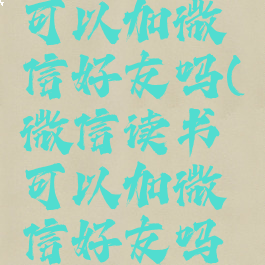 可以加微
信好友吗(
微信读书
可以加微
信好友吗